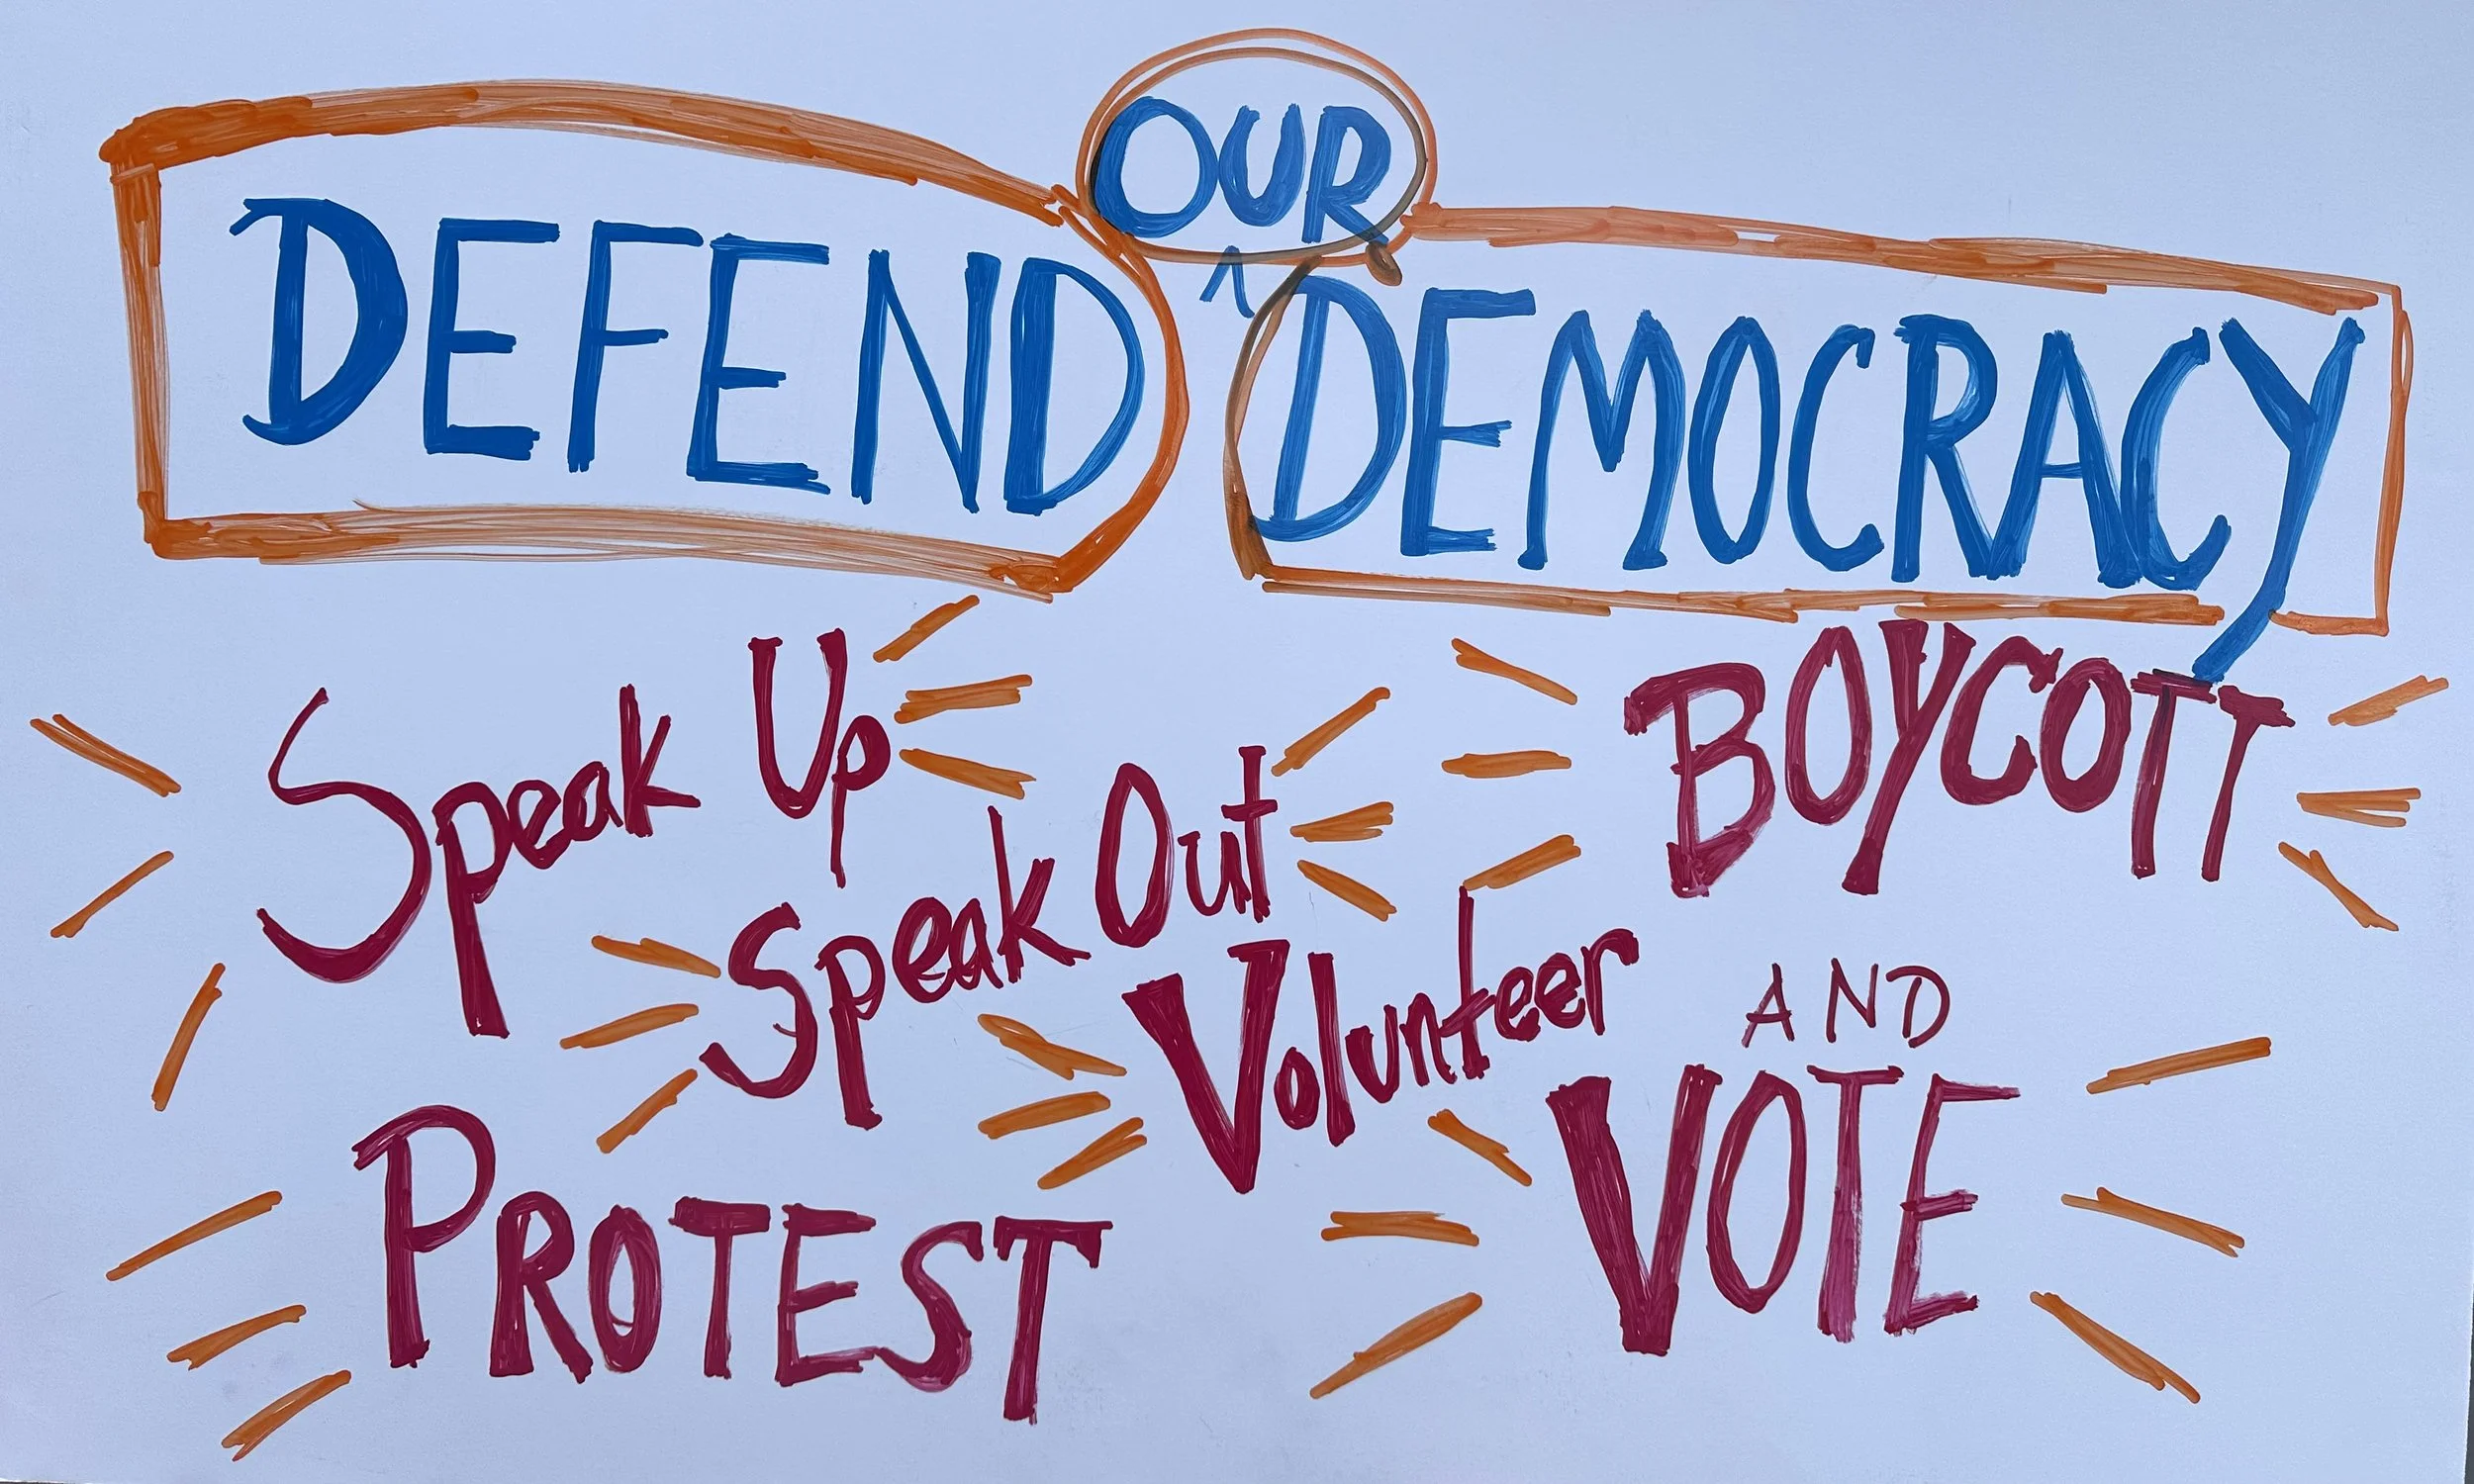 DEFEND OUR DEMOCRACY
Speak Up
Speak Out
Volunteer
BOYCOTT
PROTEST
AND
VOTE